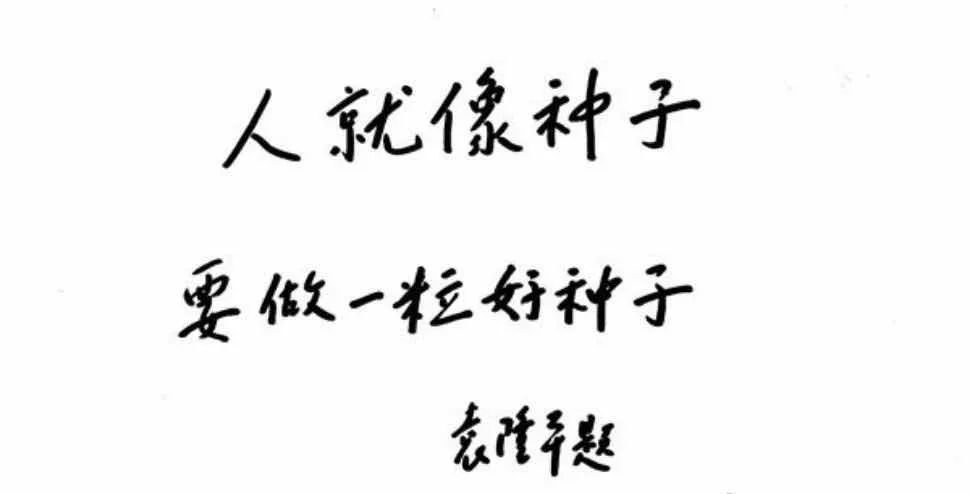 人就像种子
要做一粒好种子
袁隆平题